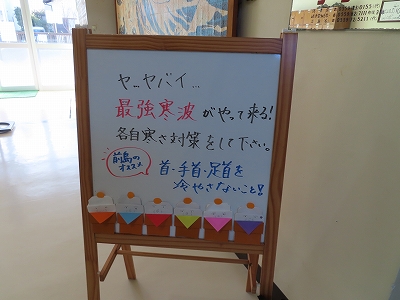 ヤ…ヤバイ…
最強寒波がやって来る!
各自寒さ対策をして下さい。
前島の
オススメ
首・手首・足首を
冷やさないこと!!